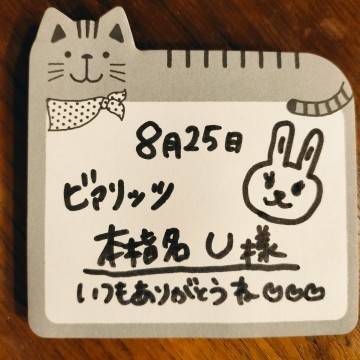 8月25日
ビアリッツ
本指名 U様
いつもありがとうね♡♡♡